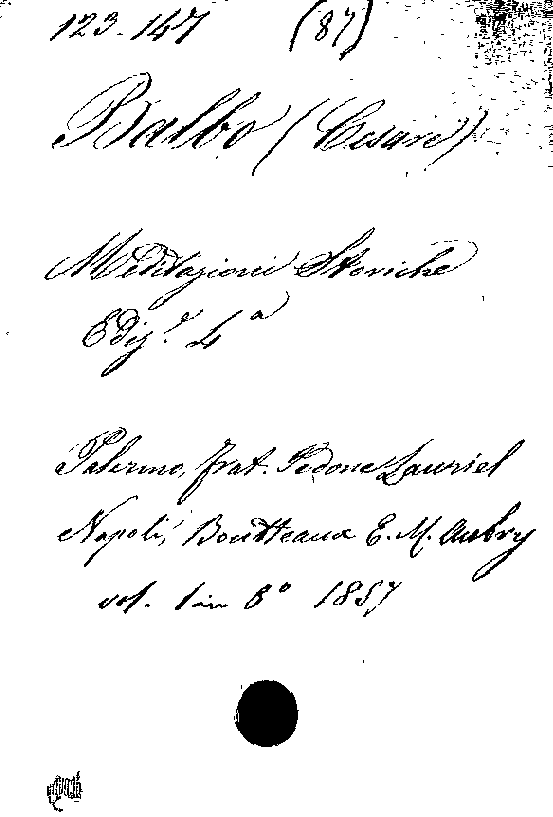 123.147 (87)
Balbo (Cesare)
Meditazioni Storiche
Ediz.e 4a
Palermo, frat. Pedone Lauriel
Napoli, Boutteaux E. M. Aubry
vol. 1 in 8° 1857